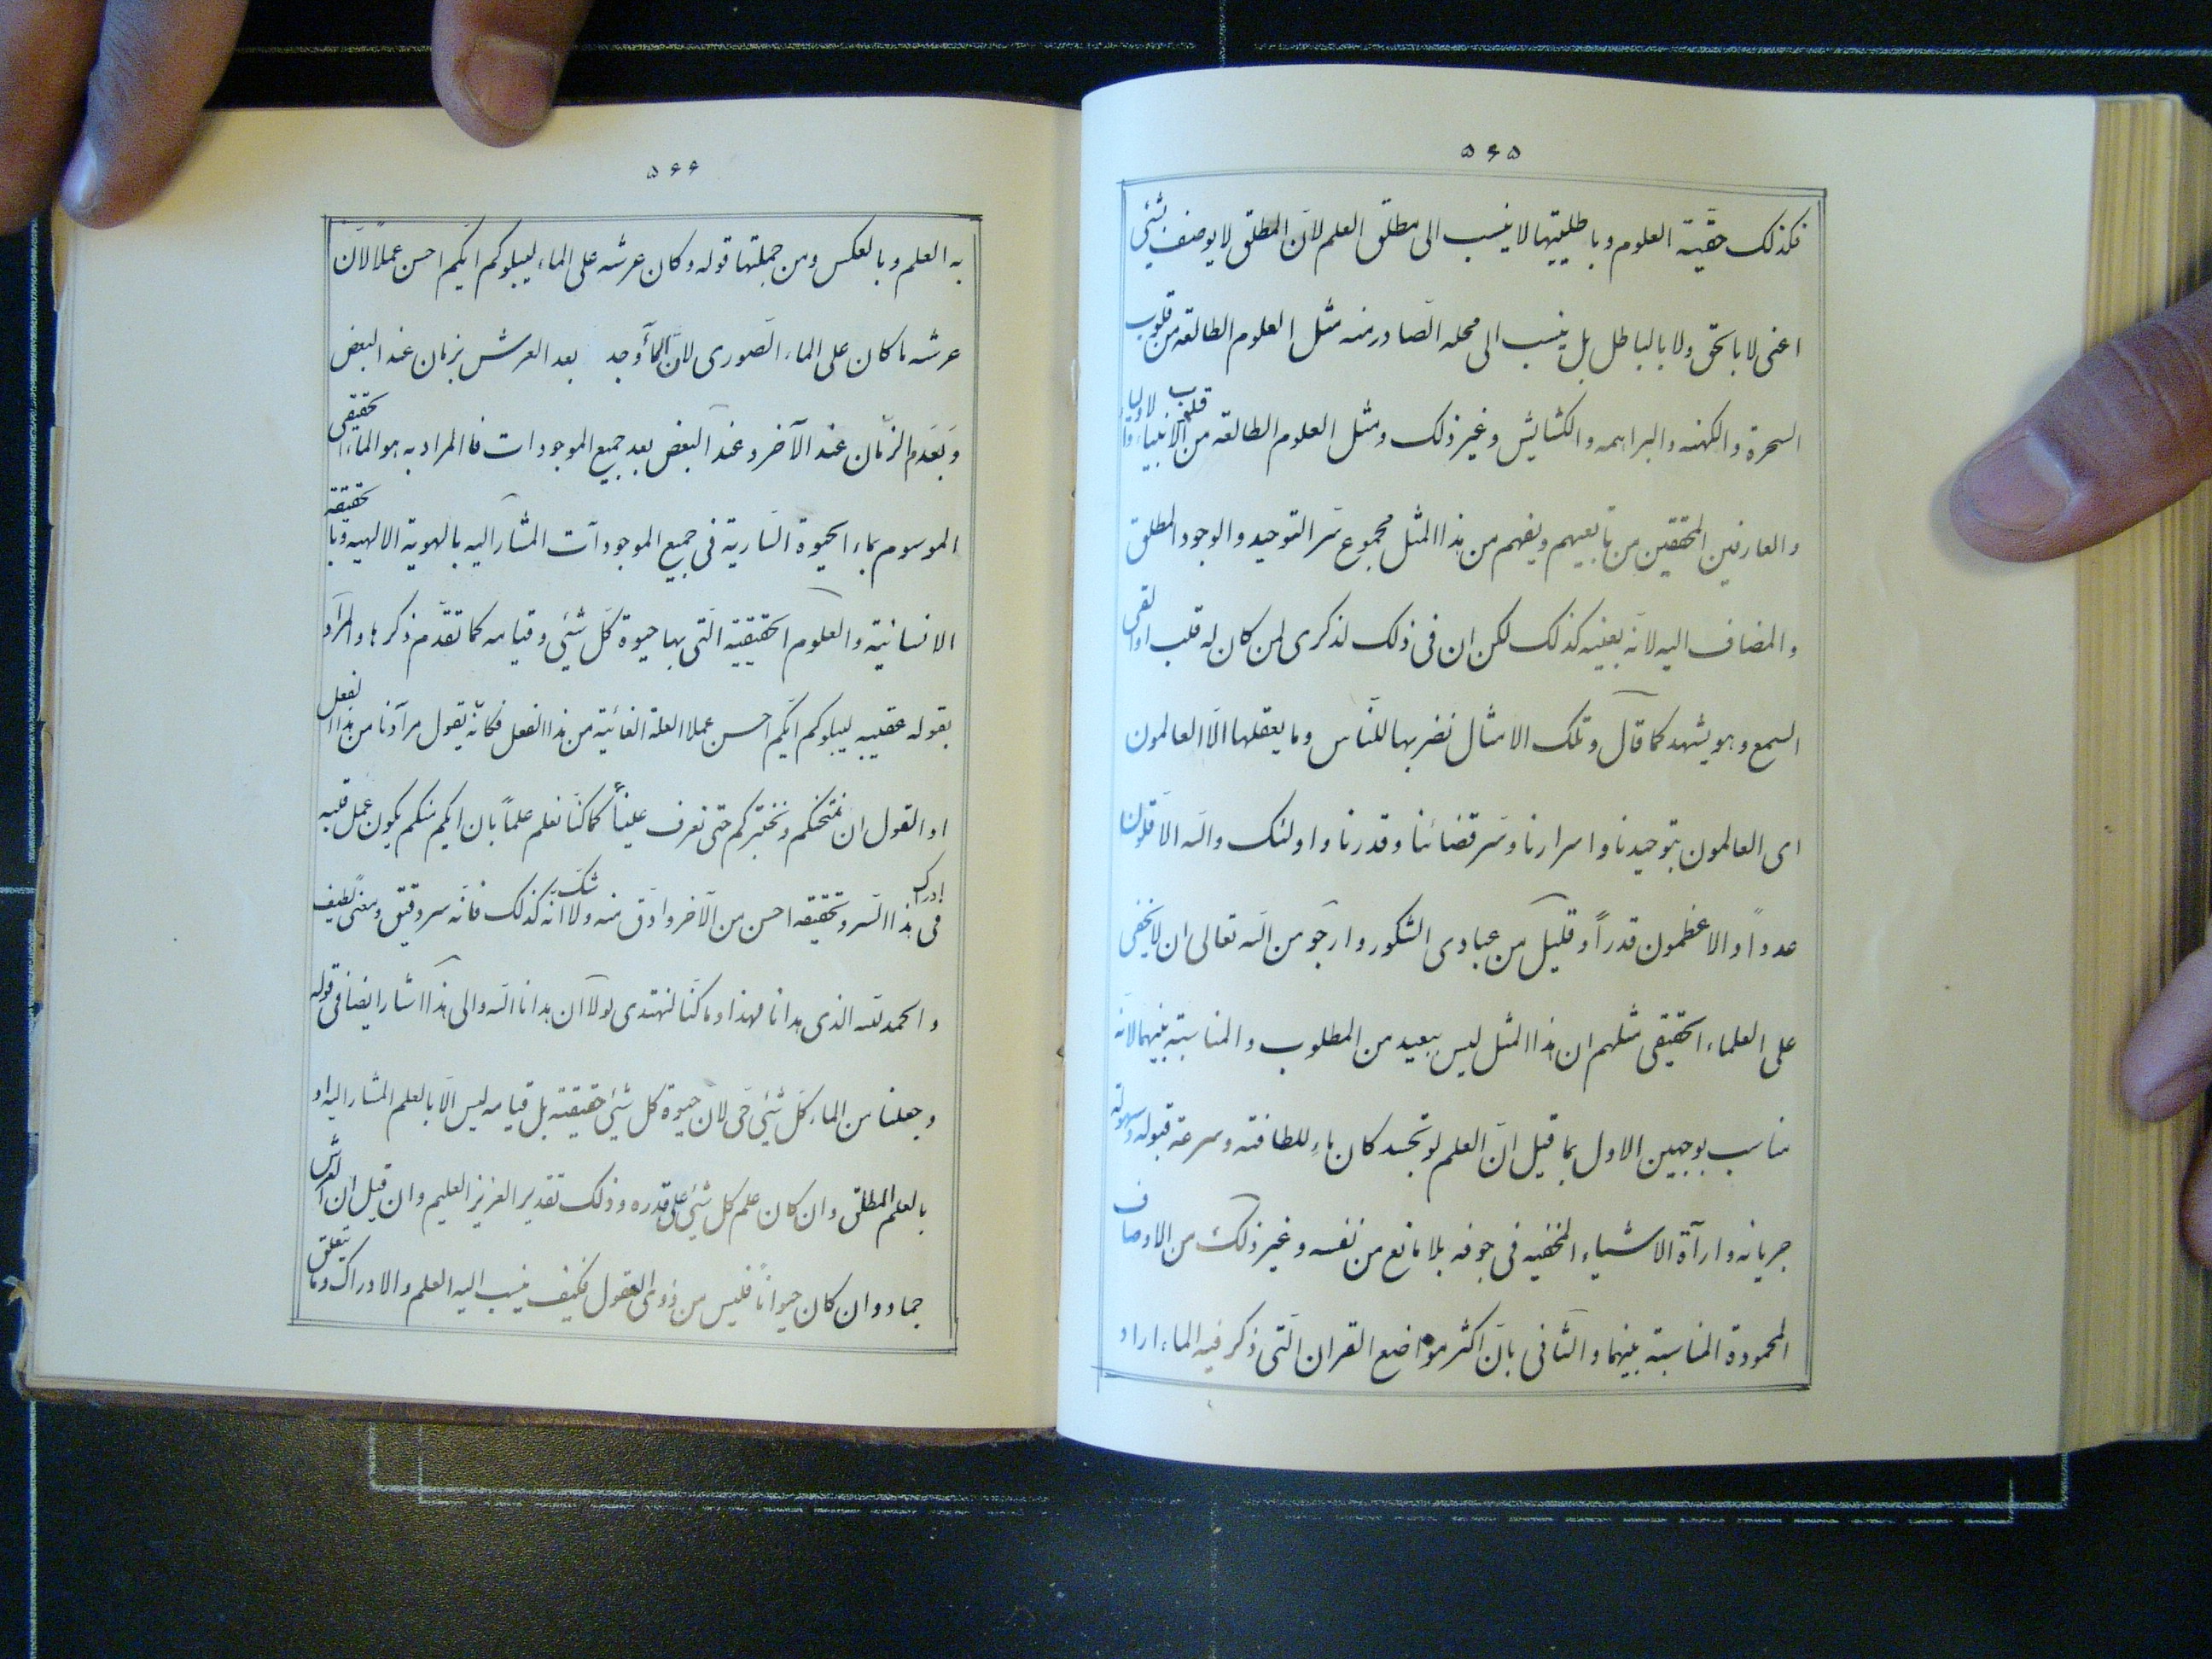 ۵۶۵
فكذلك حقّية العلوم وباطليتها لا ينسب الى مطلق العلم لانّ المطلق لا يوصف بشئي
اعنى لا بالحق ولا بالباطل بل ينسب الى محله الصّادر منه مثل العلوم الطالعة من قلوب
السحرة والكهنه والبراهمه والكشايش وغير ذلك ومثل العلوم الطالعة من قلوب الانبياء والاوليا
والعارفين المحققين من تابعيهم ويفهم من هذا المثل مجموع سّر التوحيد والوجود المطلق
والمضاف اليه لانّه بعينه كذلك لكن ان فى ذلك لذكرى لمن كان له قلب او القى
السمع وهو يشهد كما قال وتلك الامثال نضربها للنّاس وما يعقلها الّا العالمون
اى العالمون بتوحيدنا واسرارنا وسّر قضائنا وقدرنا واولئك والله الاقلّون
عدداً والاعظمون قدراً وقليل من عبادى الشكور وارجو من الله تعالى ان لا يخفى
على العلماء الحقيقى مثلهم ان هذا المثل ليس ببعيد من المطلوب والمناسبة بينهما لانّه
مناسب بوجهين الاول بما قيل انّ العلم لو تجسد كان ماءِ للطافته وسرعة قبوله وسهولة
جريانه وارآة الاشياء المخفيه فى جوفه بلا مانع من نفسه وغير ذلك من الاوصاف
المحمودة المناسبة بينهما والثّانى بانّ اكثر مواضع القران الّتى ذكر فيه الماء اراد
۵۶۶
به العلم وبالعكس ومن جملتها قوله وكان عرشه على الماء ليبلوكم ايّكم احسن عملاً لانّ
عرشه ما كان على الماء الصّورى لانّ الماء وجد بعد العرش بزمان عند البعض
وبعدم الزمّان عند الآخر وعند البعض بعد جميع الموجودات فالمراد به هو الماء الحقيقى
الموسوم بماء الحيوة السّارية فى جميع الموجودات المشار اليه بالهوية الالهيه وبالحقيقة
الانسانيّة والعلوم الحقيقيّة الّتى بها حيوة كلّ شئي وقيامه كما تقدّم ذكرها والمراد
بقوله عقيبه ليبلوكم ايّكم احسن عملا العلة الغائية من هذا الفعل فكانّه يقول مرادنا من هذا الفعل
او القول ان نمتحنكم ونختبركم حتى نعرف عليناً كما كنّا نعلم علماً بان ايكم منكم يكون عمل قلبه
فى ادراك هذا السّر وتحقيقه احسن من الآخر وادق منه ولا شكّ انّه كذلك فانّه سر دقيق ومعنىً لطيف
والحمد لله الذى هدانا لهذا وما كنّا لنهتدى لولا ان هدانا الله والى هذا اشار ايضا فى قوله
وجعلنا من الماء كلّ شئي حى لان حيوة كل شئي حقيقة بل قيامه ليس الّا بالعلم المشار اليه او
بالعلم المطلق وان كان علم كل شئي على قدره وذلك تقدير العزيز العليم وان قيل ان العرش
جماد وان كان حيواناً فليس من ذوى العقول فكيف ينسب اليه العلم والادراك وما يتعلق